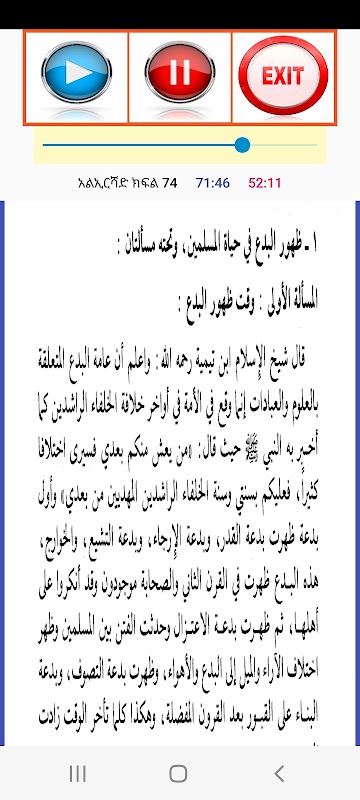 EXIT
አልኢርሻድ ክፍል 74 71:46 52:11
١ ـ ظهور البدع في حياة المسلمين، وتحته مسألتان :
المسألة الأولى : وقت ظهور البدع :
قال شيخ الإسلام ابن تيمية رحمه الله: واعلم أن عامة البدع المتعلقة
بالعلوم والعبادات إنما وقع في الأمة في أواخر خلافة الخلفاء الراشدين كما
أخبر به النبي ﷺ حيث قال: «من يعش منكم بعدي فسيرى اختلافا
كثيراً، فعليكم بسنتي وسنة الخلفاء الراشدين المهديين من بعدي» وأول
بدعة ظهرت بدعة القدر، وبدعة الإرجاء، وبدعة التشيع، والخوارج،
هذه البدع ظهرت في القرن الثاني والصحابة موجودون وقد أنكروا على
أهلها، ثم ظهرت بدعة الاعتزال وحدثت الفتن بين المسلمين وظهر
اختلاف الآراء والميل إلى البدع والأهواء، وظهرت بدعة التصوف، وبدعة
البناء على القبور بعد القرون المفضلة، وهكذا كلما تأخر الوقت زادت